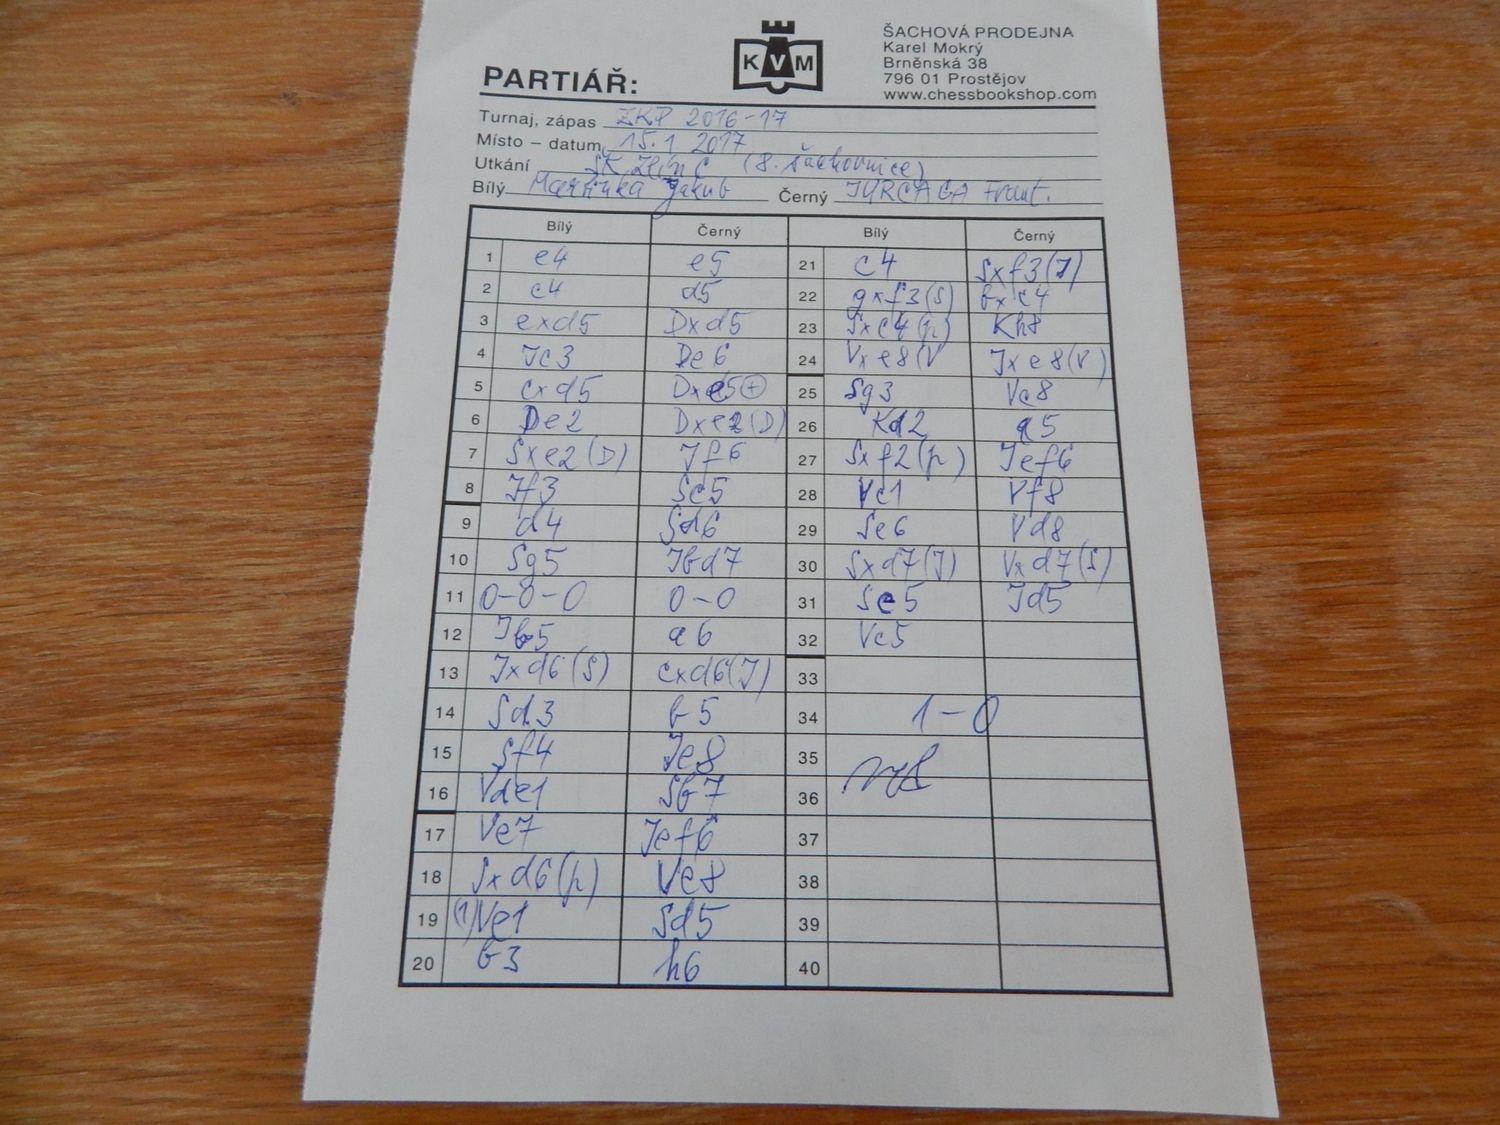 PARTIÁŘ:
KVM
ŠACHOVÁ PRODEJNA
Karel Mokrý
Brněnská 38
796 01 Prostějov
www.chessbookshop.com
Turnaj, zápas ZKP 2016-17
Místo – datum 15.1 2017
Utkání ŠK Zlín C (8. šachovnice)
Bílý Martinka Jakub Černý JURČAGA Frant.
Bílý Černý Bílý Černý
1 e4 e5 21 c4 Sxf3(J)
2 c4 d5 22 gxf3(S) bxc4
3 exd5 Dxd5 23 Sxc4(p) Kh8
4 Jc3 De6 24 Vxe8(V Jxe8(V)
5 cxd5 Dxe5(+) 25 Sg3 Vc8
6 De2 Dxe2(D) 26 Kd2 a5
7 Sxe2(D) Jf6 27 Sxf2(p) Jef6
8 Jf3 Sc5 28 Vc1 Vf8
9 d4 Sd6 29 Se6 Vd8
10 Sg5 Jbd7 30 Sxd7(J) Vxd7(S)
11 0-0-0 0-0 31 Se5 Jd5
12 Jb5 a6 32 Vc5
13 Jxd6(S) cxd6(J) 33
14 Sd3 b5 34 1-0
15 Sf4 Je8 35
16 Vde1 Sb7 36
17 Ve7 Jef6 37
18 Sxd6(p) Vc8 38
19 (1)Ve1 Sd5 39
20 b3 h6 40